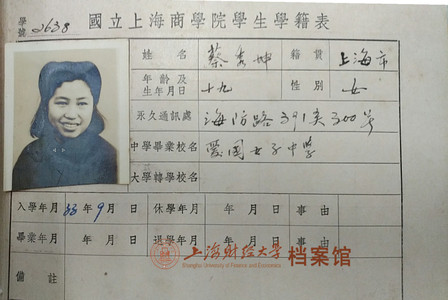 學號 2638 國立上海商學院學生學籍表
姓名 蔡秀坤 籍貫 上海市
年齡及生年月日 十九 性別 女
永久通訊處 海防路391弄300号
中學畢業校名 愛國女子中學
大學轉學校名
入學年月 33年9月 日 休學年月 年 月 日 事由
畢業年月 年 月 日 退學年月 年 月 日 事由
上海财经大学 档案馆
Shanghai University of Finance and Economics
備註